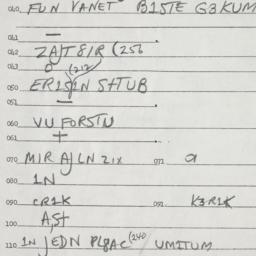 040 FUN VANET B1STE G3KUM
041 —
042 ZAJT8/R (256
043
050 ER1S1N S+TUB
051 —
060 VU FORSTN
061 +
070 MIR AJLN 21X 071 a
080 1N
090 CR1K 091 K3R1K
100 A,St
110 1N JEDN PL8AC (240 UMITUM